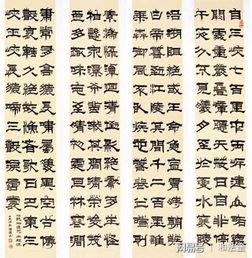 自三峽七百里中兩岸連山略無
闕處重巖疊嶂隱天蔽日自非亭
午夜分不見曦月至于夏水襄陵
沿溯阻絕或王命急宣有時朝發
白帝暮到江陵其間千二百里雖
乘奔御風不以疾也春冬之時則
素湍綠潭回清倒影絕巘多生怪
柏懸泉瀑布飛漱其間清榮峻茂
良多趣味每至晴初霜旦林寒澗
肅常有高猿長嘯屬引淒異空谷傳
響哀轉久絕故漁者歌曰巴東三
峽巫峽長猿鳴三聲淚沾裳